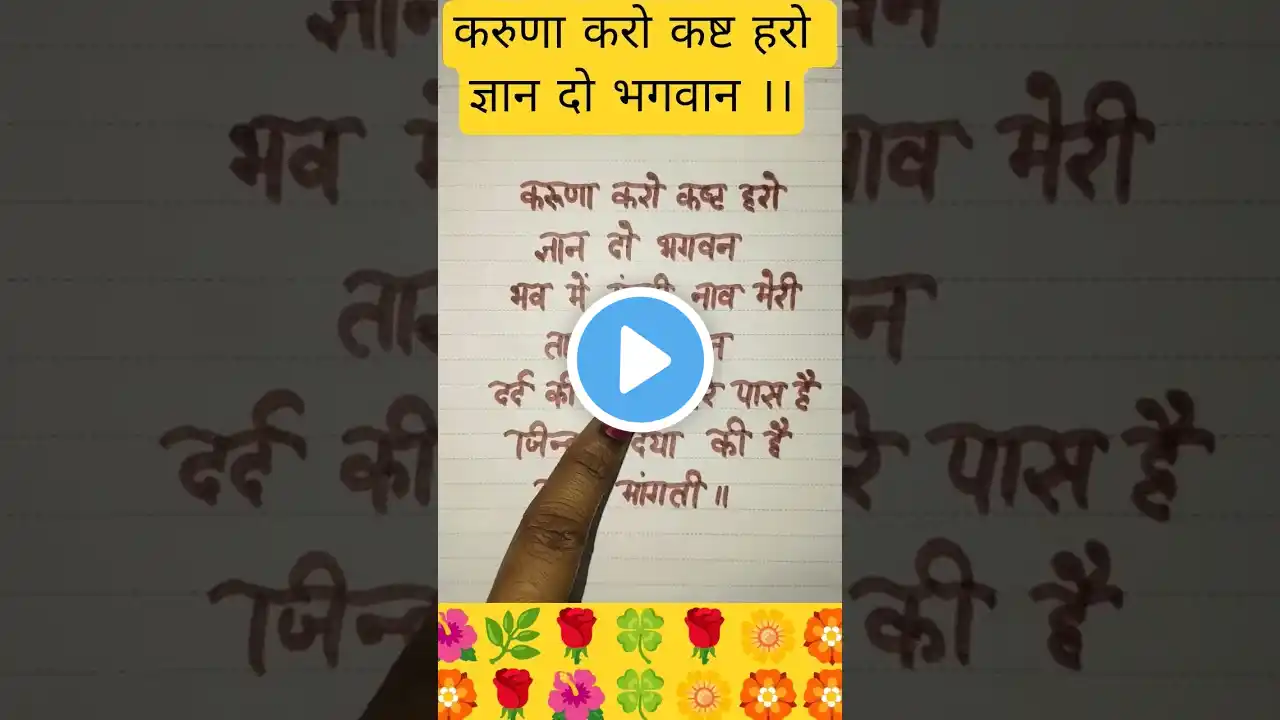 करुणा करो कष्ट हरो
ज्ञान दो भगवान ।।
करूणा करो कष्ट हरो
ज्ञान दो भगवन
भव में नाव मेरी
दर्द की पास है
दया की है
मांगती ॥